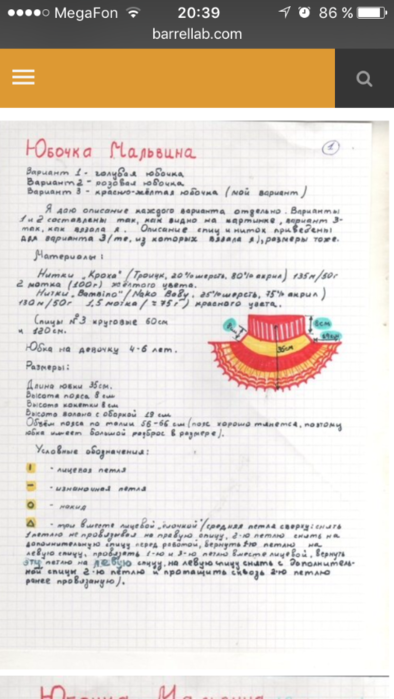 MegaFon 20:39 86 %
barrellab.com
Юбочка Мальвина 1
Вариант 1 - голубая юбочка
Вариант 2 - розовая юбочка
Вариант 3 - красно-жёлтая юбочка (мой вариант)
Я даю описание каждого варианта отдельно. Варианты
1 и 2 составлены так, как видно на картинке, вариант 3-
так, как вязала я. Описание спиц и ниток приведены
для варианта 3 (те, из которых вязала я), размеры тоже.
Материалы:
Нитки "Кроха" (Троицк, 20% шерсть, 80% акрил) 135м/50г
2 мотка (100г) жёлтого цвета.
Нитки "Bambino" (Nako Baby, 25% шерсть, 75% акрил)
130м/50г 1,5 мотка (≈75г) красного цвета.
Спицы №3 круговые 60см
и 120см.
Юбка на девочку 4-6 лет.
Размеры:
Длина юбки 35см.
Высота пояса 8 см
Высота кокетки 8 см.
Высота волана с оборкой 19 см
Объём пояса по талии 56-96 см (пояс хорошо тянется, поэтому
юбка имеет большой разброс в размере).
8см
35см
Условные обозначения:
- лицевая петля
- изнаночная петля
- накид
- три вместе лицевой "глочкой" (средняя петля сверху: снять
1 петлю не провязывая на правую спицу, 2-ю петлю снять на
дополнительную спицу перед работой, вернуть 1-ю петлю на
левую спицу, провязать 1-ю и 3-ю петлю вместе лицевой, вернуть
эту петлю на левую спицу, на левую спицу снять с дополнитель-
ной спицы 2-ю петлю и протащить сквозь 2-ю петлю
ранее провязаную).
Юбочка Мальвина